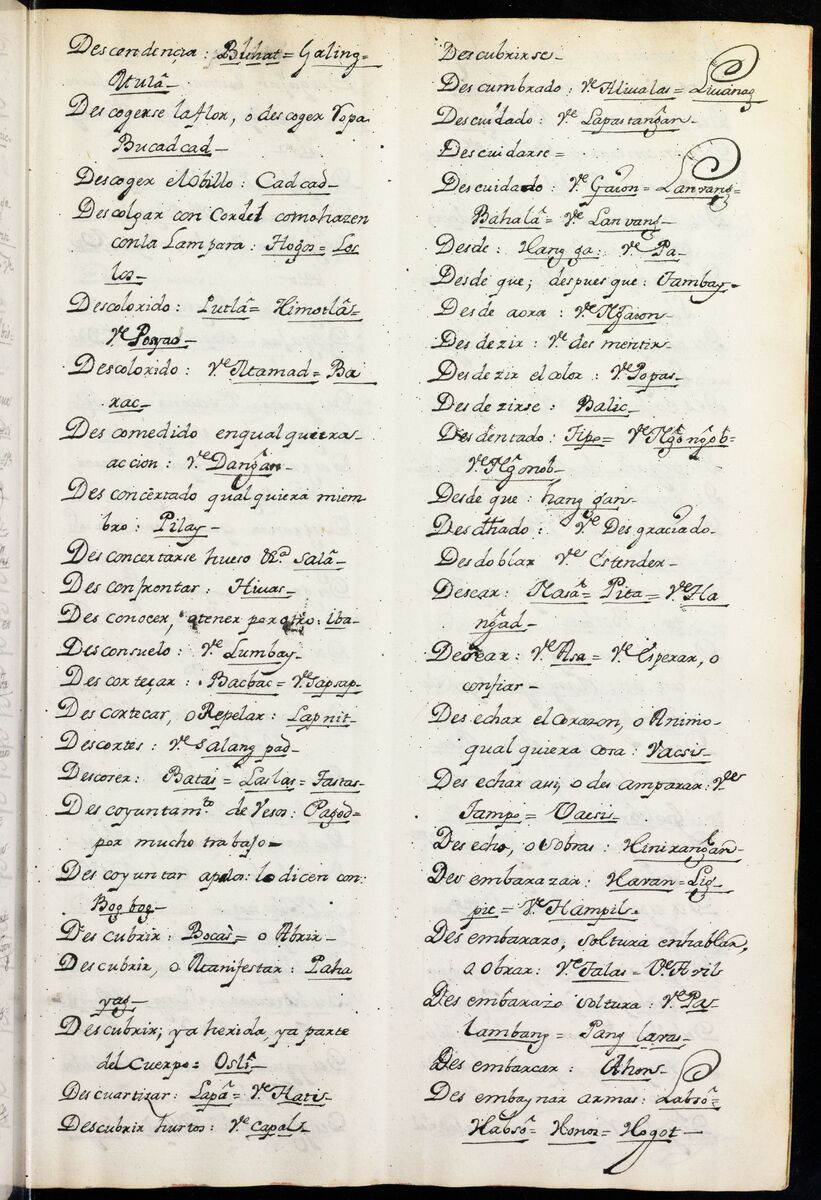 Descendencia: Buhat= Galing=
Mulâ-
Descogerse la flor, o descoger Ropa
Bucadcad-
Descoger el obillo: Cadcad-
Descolgar con Cordel como hazen
con la Lampara: Hogos= Los
los-
Descolorido: Putlâ= Himotlâs=
Vᵉ Posyad-
Descolorido: Vᵉ Atamad= Ba
rac-
Descomedido en qualquiera
accion: Vᵉ Dangan-
Desconcertado qualquiera miem
bro: Pilay-
Desconcertarse hueso Salâ-
Desconfrontar: Hivas-
Desconocer, o tener por otro: iba-
Desconsuelo: Vᵉ Lumbay-
Descorteçar: Bacbac= Vᵉ Sapsap-
Descortecar, o Repelar: Lapnit-
Descortes: Vᵉ Salang pad-
Descorer: Batas= Laslas= Tastas-
Descoyuntamᵗᵒ de Vesos: Pagod=
por mucho trabajo-
Descoyuntar lo dicen con:
Bog bog-
Descubrir: Bocas= o Abrir-
Descubrir, o Manifestar: Paha
yag-
Descubrir; ya herida, ya parte
del Cuerpo= Oslî-
Descuartizar: Lapâ= Vᵉ Hatis-
Descubrir hurtos: Vᵉ Capal-
Descubrirse-
Descumbrado: Vᵉ Alivalas= Livanag
Descuidado: Vᵉ Lapastangan-
Descuidarse=
Descuidado: Vᵉ Gaion= Lanvang=
Bahalâ= Vᵉ Lanvang-
Desde: Hang ga: Vᵉ Pa-
Desde que; despues que: Tambay-
Desde aora: Vᵉ Ngaion-
Desdezir: Vᵉ desmentir-
Desdezir el color: Vᵉ Popas-
Desdezirse: Balic-
Desdentado: Tipo= Vᵉ Ngongob=
Vᵉ Ngonob-
Desde que: hang gan-
Desdhado: Vᵉ Desgraciado-
Desdoblar Vᵉ Estender-
Desear: Nasâ= Pita= Vᵉ Ha
ngad-
Desear: Vᵉ Asa= Vᵉ Esperar, o
confiar-
Desechar el corazon, o Animo
qualquiera cosa: Vacsi-
Desechar assi, o desamparar: Vᵉᵉˢ
Tampo= Vacsi-
Desecho, o Sobras: Hinirangan-
Desembarazar: Havan= Lig-
pic= Vᵉ Hampil-
Desembarazo, soltura en hablar,
a obrar: Vᵉ Talas= Vᵉ Avil
Desembarazo soltura: Vᵉ Pa
lambang= Pang laras-
Desembarcar: Ahon-
Desembaynar armas: Labsô=
Habsô= Honos= Hogot-